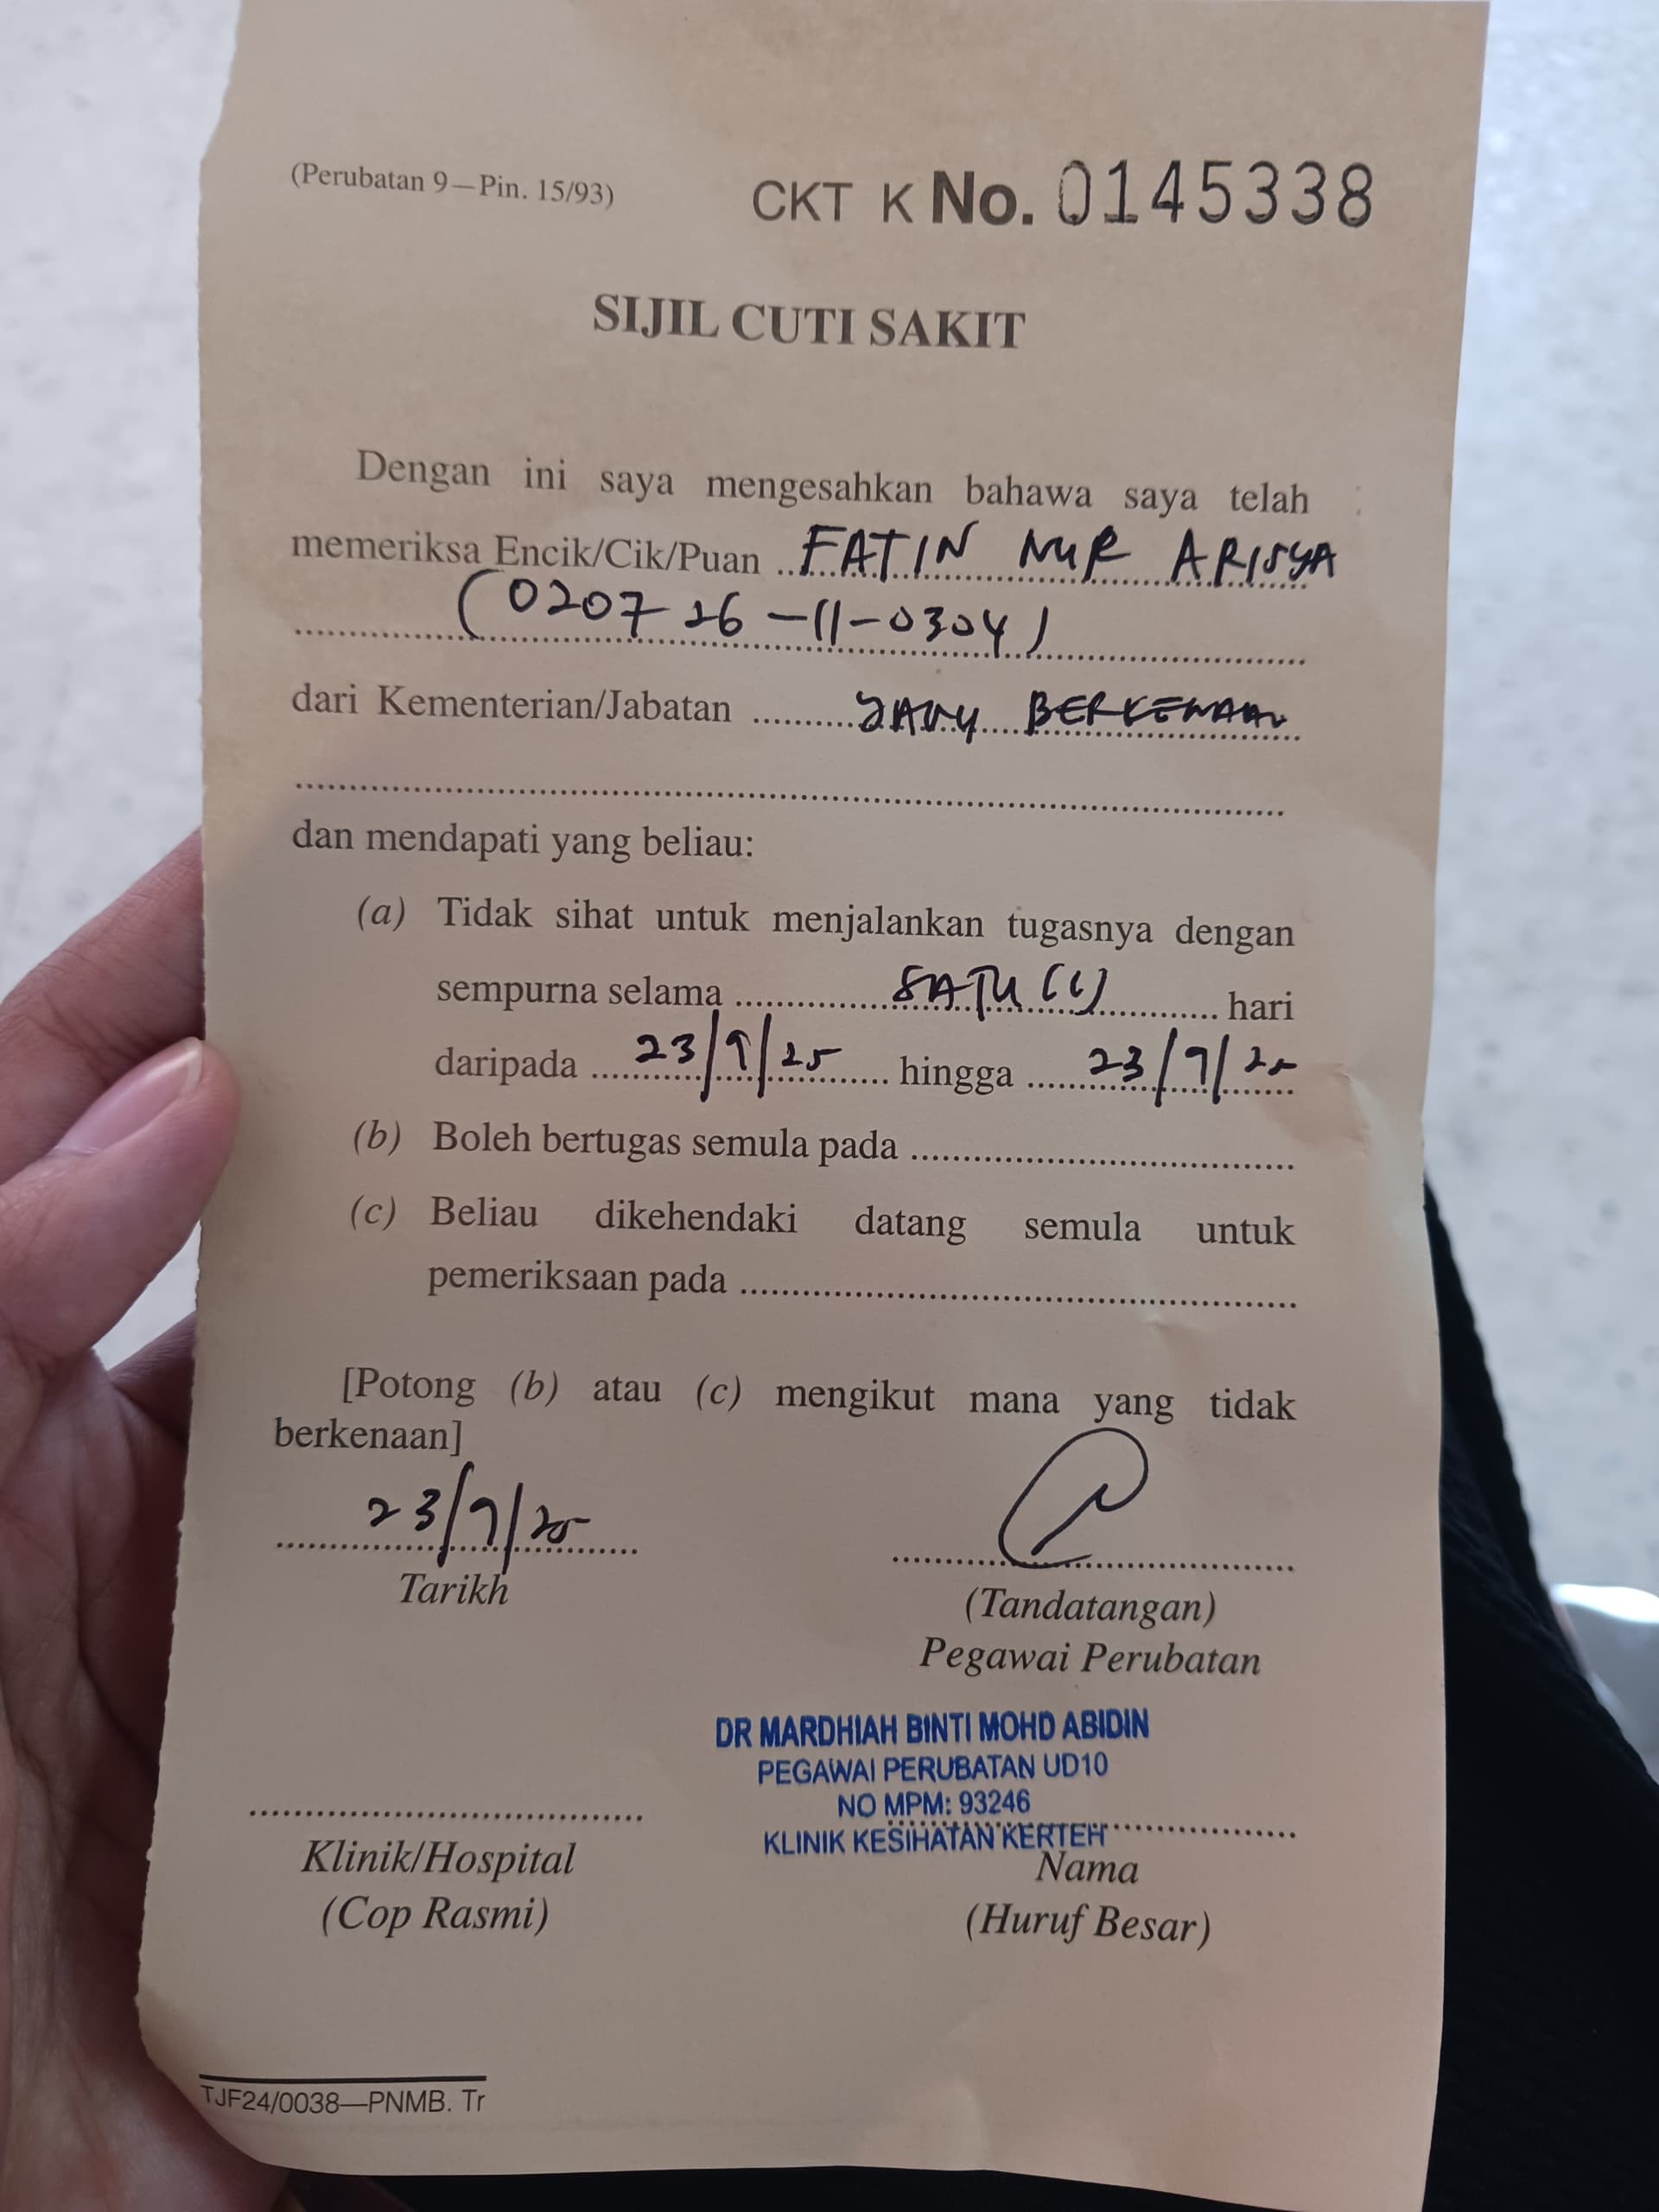 (Perubatan 9—Pin. 15/93)
CKT K No. 0145338
SIJIL CUTI SAKIT
Dengan ini saya mengesahkan bahawa saya telah
memeriksa Encik/Cik/Puan FATIN NUR ARISYA
(020726-11-0304)
dari Kementerian/Jabatan YANG BERKENAAN
dan mendapati yang beliau:
(a) Tidak sihat untuk menjalankan tugasnya dengan
sempurna selama SATU (1) hari
daripada 23/9/25 hingga 23/9/25
(b) Boleh bertugas semula pada
(c) Beliau dikehendaki datang semula untuk
pemeriksaan pada
[Potong (b) atau (c) mengikut mana yang tidak
berkenaan]
23/9/25
Tarikh
(Tandatangan)
Pegawai Perubatan
DR MARDHIAH BINTI MOHD ABIDIN
PEGAWAI PERUBATAN UD10
NO MPM: 93246
KLINIK KESIHATAN KERTEH
Klinik/Hospital
(Cop Rasmi)
Nama
(Huruf Besar)
TJF24/0038—PNMB. Tr